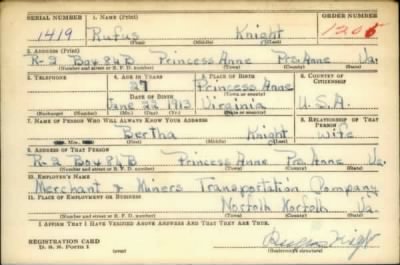 SERIAL NUMBER 1. NAME (Print) ORDER NUMBER
1419 Rufus Knight 1205
(First) (Middle) (Last)
2. ADDRESS (Print)
R-2 Box 86B Princess Anne Pr. Anne Va.
(Number and street or R. F. D. number) (Town) (County) (State)
3. TELEPHONE 4. AGE IN YEARS 5. PLACE OF BIRTH 6. COUNTRY OF CITIZENSHIP
27 Princess Anne
(Town or county)
DATE OF BIRTH
June 22 1913 Virginia U.S.A.
(Exchange) (Number) (Mo.) (Day) (Yr.) (State or country)
7. NAME OF PERSON WHO WILL ALWAYS KNOW YOUR ADDRESS 8. RELATIONSHIP OF THAT PERSON
Bertha Knight Wife
(Mr., Mrs., Miss) (First) (Middle) (Last)
9. ADDRESS OF THAT PERSON
R-2 Box 86B Princess Anne Pr. Anne Va.
(Number and street or R. F. D. number) (Town) (County) (State)
10. EMPLOYER'S NAME
Merchant & Miners Transportation Company
11. PLACE OF EMPLOYMENT OR BUSINESS
Norfolk Norfolk Va.
(Number and street or R. F. D. number) (Town) (County) (State)
I AFFIRM THAT I HAVE VERIFIED ABOVE ANSWERS AND THAT THEY ARE TRUE.
REGISTRATION CARD
D. S. S. Form 1 (over) (Registrant's signature)